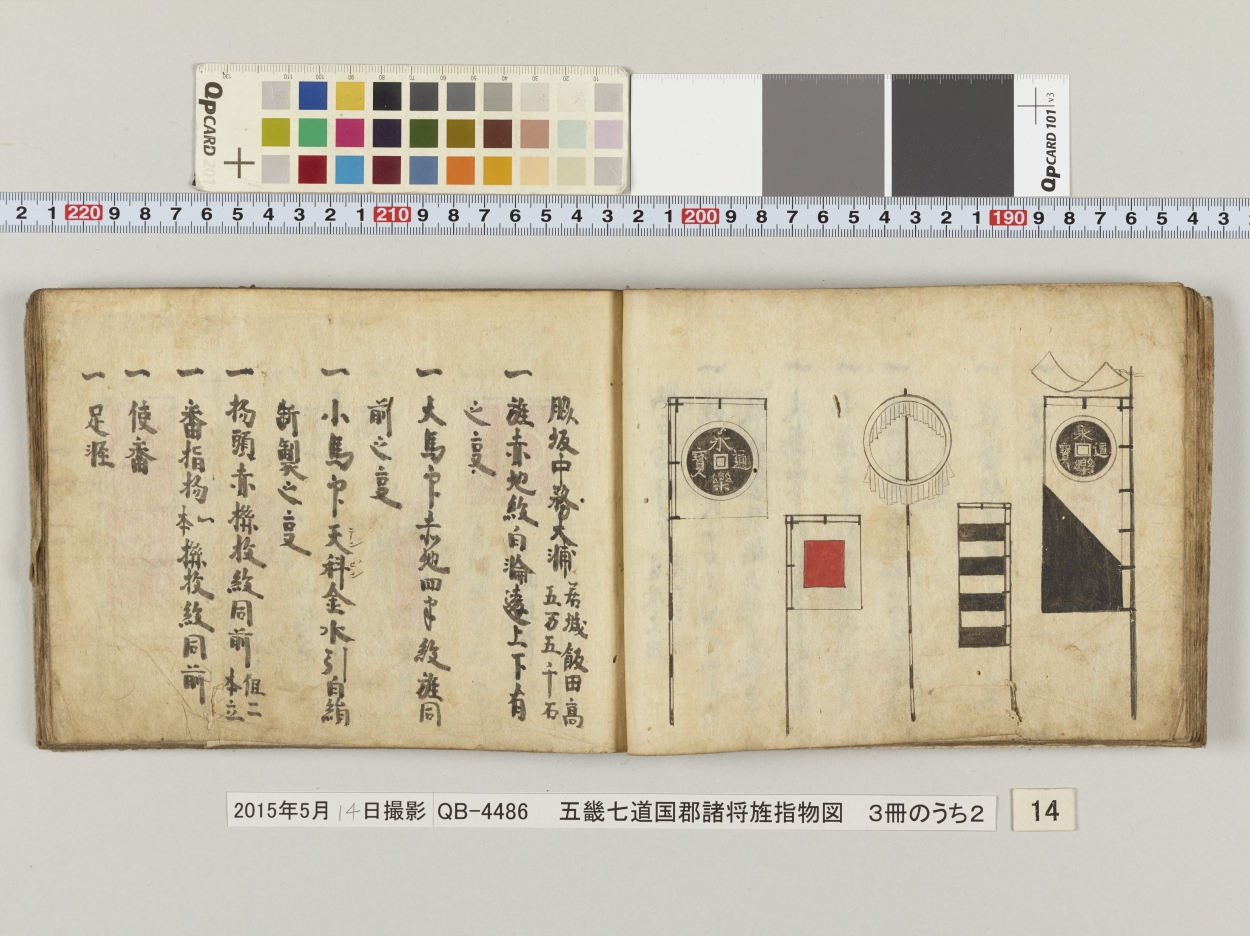 QPCARD 201
QPCARD 101 v3
2 1 220 9 8 7 6 5 4 3 2 1 210 9 8 7 6 5 4 3 2 1 200 9 8 7 6 5 4 3 2 1 190 9 8 7 6 5 4 3
永樂通寳
永樂通寳
脇坂中務大浦 居城飯田高
五万五千石
一 旌赤地紋白輪違上下有
之叓
一 大馬印赤地四半紋旌同
前之叓
一 小馬印天秤金水引白絹
テンビン
新製之叓
一 物頭赤撓紋同前 但二
本立
一 番指物一本撓紋同前
一 使番
一 足軽
2015年5月14日撮影 QB-4486 五畿七道国郡諸将旌指物図 3冊のうち2
14